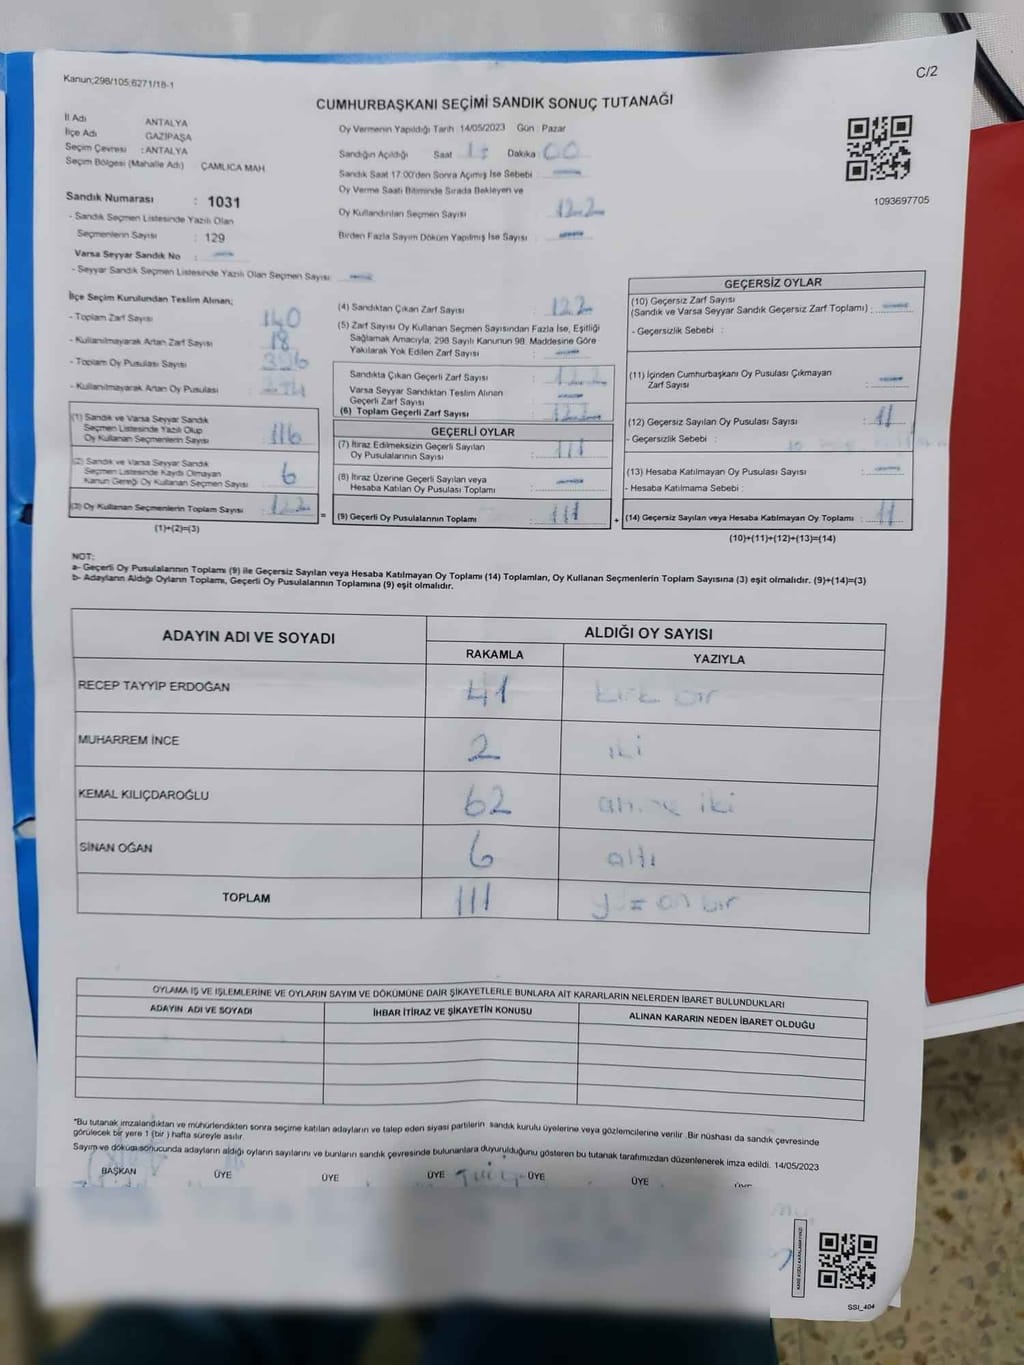 Kanun;298/105;6271/18-1
C/2
CUMHURBAŞKANI SEÇİMİ SANDIK SONUÇ TUTANAĞI
İl Adı ANTALYA
İlçe Adı GAZİPAŞA
Seçim Çevresi : ANTALYA
Seçim Bölgesi (Mahalle Adı) ÇAMLICA MAH
Sandık Numarası : 1031
- Sandık Seçmen Listesinde Yazılı Olan
Seçmenlerin Sayısı : 129
Varsa Seyyar Sandık No :
- Seyyar Sandık Seçmen Listesinde Yazılı Olan Seçmen Sayısı
Oy Vermenin Yapıldığı Tarih :14/05/2023 Gün : Pazar
Sandığın Açıldığı Saat Dakika 00
Sandık Saat 17:00'den Sonra Açımış İse Sebebi :
Oy Verme Saati Bitiminde Sırada Bekleyen ve
Oy Kullandırılan Seçmen Sayısı 122
Birden Fazla Sayım Döküm Yapılmış İse Sayısı :
1093697705
İlçe Seçim Kurulundan Teslim Alınan;
- Toplam Zarf Sayısı 140
- Kullanılmayarak Artan Zarf Sayısı 18
- Toplam Oy Pusulası Sayısı
- Kullanılmayarak Artan Oy Pusulası
(1) Sandık ve Varsa Seyyar Sandık
Seçmen Listesinde Yazılı Olup
Oy Kullanan Seçmenlerin Sayısı : 116
(2) Sandık ve Varsa Seyyar Sandık
Seçmen Listesinde Kaydı Olmayan
Kanun Gereği Oy Kullanan Seçmen Sayısı 6
(3) Oy Kullanan Seçmenlerin Toplam Sayısı : 122
(1)+(2)=(3)
(4) Sandıktan Çıkan Zarf Sayısı : 122
(5) Zarf Sayısı Oy Kullanan Seçmen Sayısından Fazla İse, Eşitliği
Sağlamak Amacıyla; 298 Sayılı Kanunun 98. Maddesine Göre
Yakılarak Yok Edilen Zarf Sayısı :
Sandıkta Çıkan Geçerli Zarf Sayısı : 122
Varsa Seyyar Sandıktan Teslim Alınan
Geçerli Zarf Sayısı :
(6) Toplam Geçerli Zarf Sayısı : 122
GEÇERLİ OYLAR
(7) İtiraz Edilmeksizin Geçerli Sayılan
Oy Pusulalarının Sayısı : 111
(8) İtiraz Üzerine Geçerli Sayılan veya
Hesaba Katılan Oy Pusulası Toplamı :
= (9) Geçerli Oy Pusulalarının Toplamı : 111
GEÇERSİZ OYLAR
(10) Geçersiz Zarf Sayısı
(Sandık ve Varsa Seyyar Sandık Geçersiz Zarf Toplamı) :
- Geçersizlik Sebebi :
(11) İçinden Cumhurbaşkanı Oy Pusulası Çıkmayan
Zarf Sayısı :
(12) Geçersiz Sayılan Oy Pusulası Sayısı : 11
- Geçersizlik Sebebi :
(13) Hesaba Katılmayan Oy Pusulası Sayısı :
- Hesaba Katılmama Sebebi :
+ (14) Geçersiz Sayılan veya Hesaba Katılmayan Oy Toplamı : 11
(10)+(11)+(12)+(13)=(14)
NOT:
a- Geçerli Oy Pusulalarının Toplamı (9) ile Geçersiz Sayılan veya Hesaba Katılmayan Oy Toplamı (14) Toplamları, Oy Kullanan Seçmenlerin Toplam Sayısına (3) eşit olmalıdır. (9)+(14)=(3)
b- Adayların Aldığı Oyların Toplamı, Geçerli Oy Pusulalarının Toplamına (9) eşit olmalıdır.
ADAYIN ADI VE SOYADI ALDIĞI OY SAYISI
RAKAMLA YAZIYLA
RECEP TAYYİP ERDOĞAN 41 kırk bir
MUHARREM İNCE 2 iki
KEMAL KILIÇDAROĞLU 62 iki
SİNAN OĞAN 6 altı
TOPLAM 111 yüz on bir
OYLAMA İŞ VE İŞLEMLERİNE VE OYLARIN SAYIM VE DÖKÜMÜNE DAİR ŞİKAYETLERLE BUNLARA AİT KARARLARIN NELERDEN İBARET BULUNDUKLARI
ADAYIN ADI VE SOYADI İHBAR İTİRAZ VE ŞİKAYETİN KONUSU ALINAN KARARIN NEDEN İBARET OLDUĞU
*Bu tutanak imzalandıktan ve mühürlendikten sonra seçime katılan adayların ve talep eden siyasi partilerin sandık kurulu üyelerine veya gözlemcilerine verilir .Bir nüshası da sandık çevresinde
görülecek bir yere 1 (bir ) hafta süreyle asılır.
Sayım ve döküm sonucunda adayların aldığı oyların sayılarını ve bunların sandık çevresinde bulunanlara duyurulduğunu gösteren bu tutanak tarafımızdan düzenlenerek imza edildi. 14/05/2023
BAŞKAN ÜYE ÜYE ÜYE ÜYE ÜYE
SSI_404